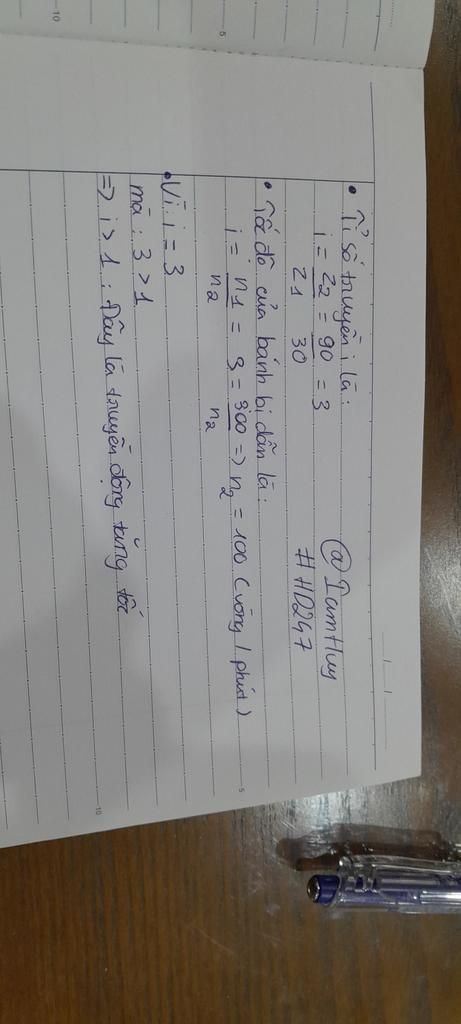 • Tỉ số truyền i là:
i = Z2/Z1 = 90/30 = 3
@IamHuy
#HD247
• Tốc độ của bánh bị dẫn là:
i = n1/n2 = 3 = 300/n2 => n2 = 100 (vòng / phút)
• Vì: i = 3
mà: 3 > 1
=> i > 1: Đây là truyền động tăng tốc
5
10
5
10